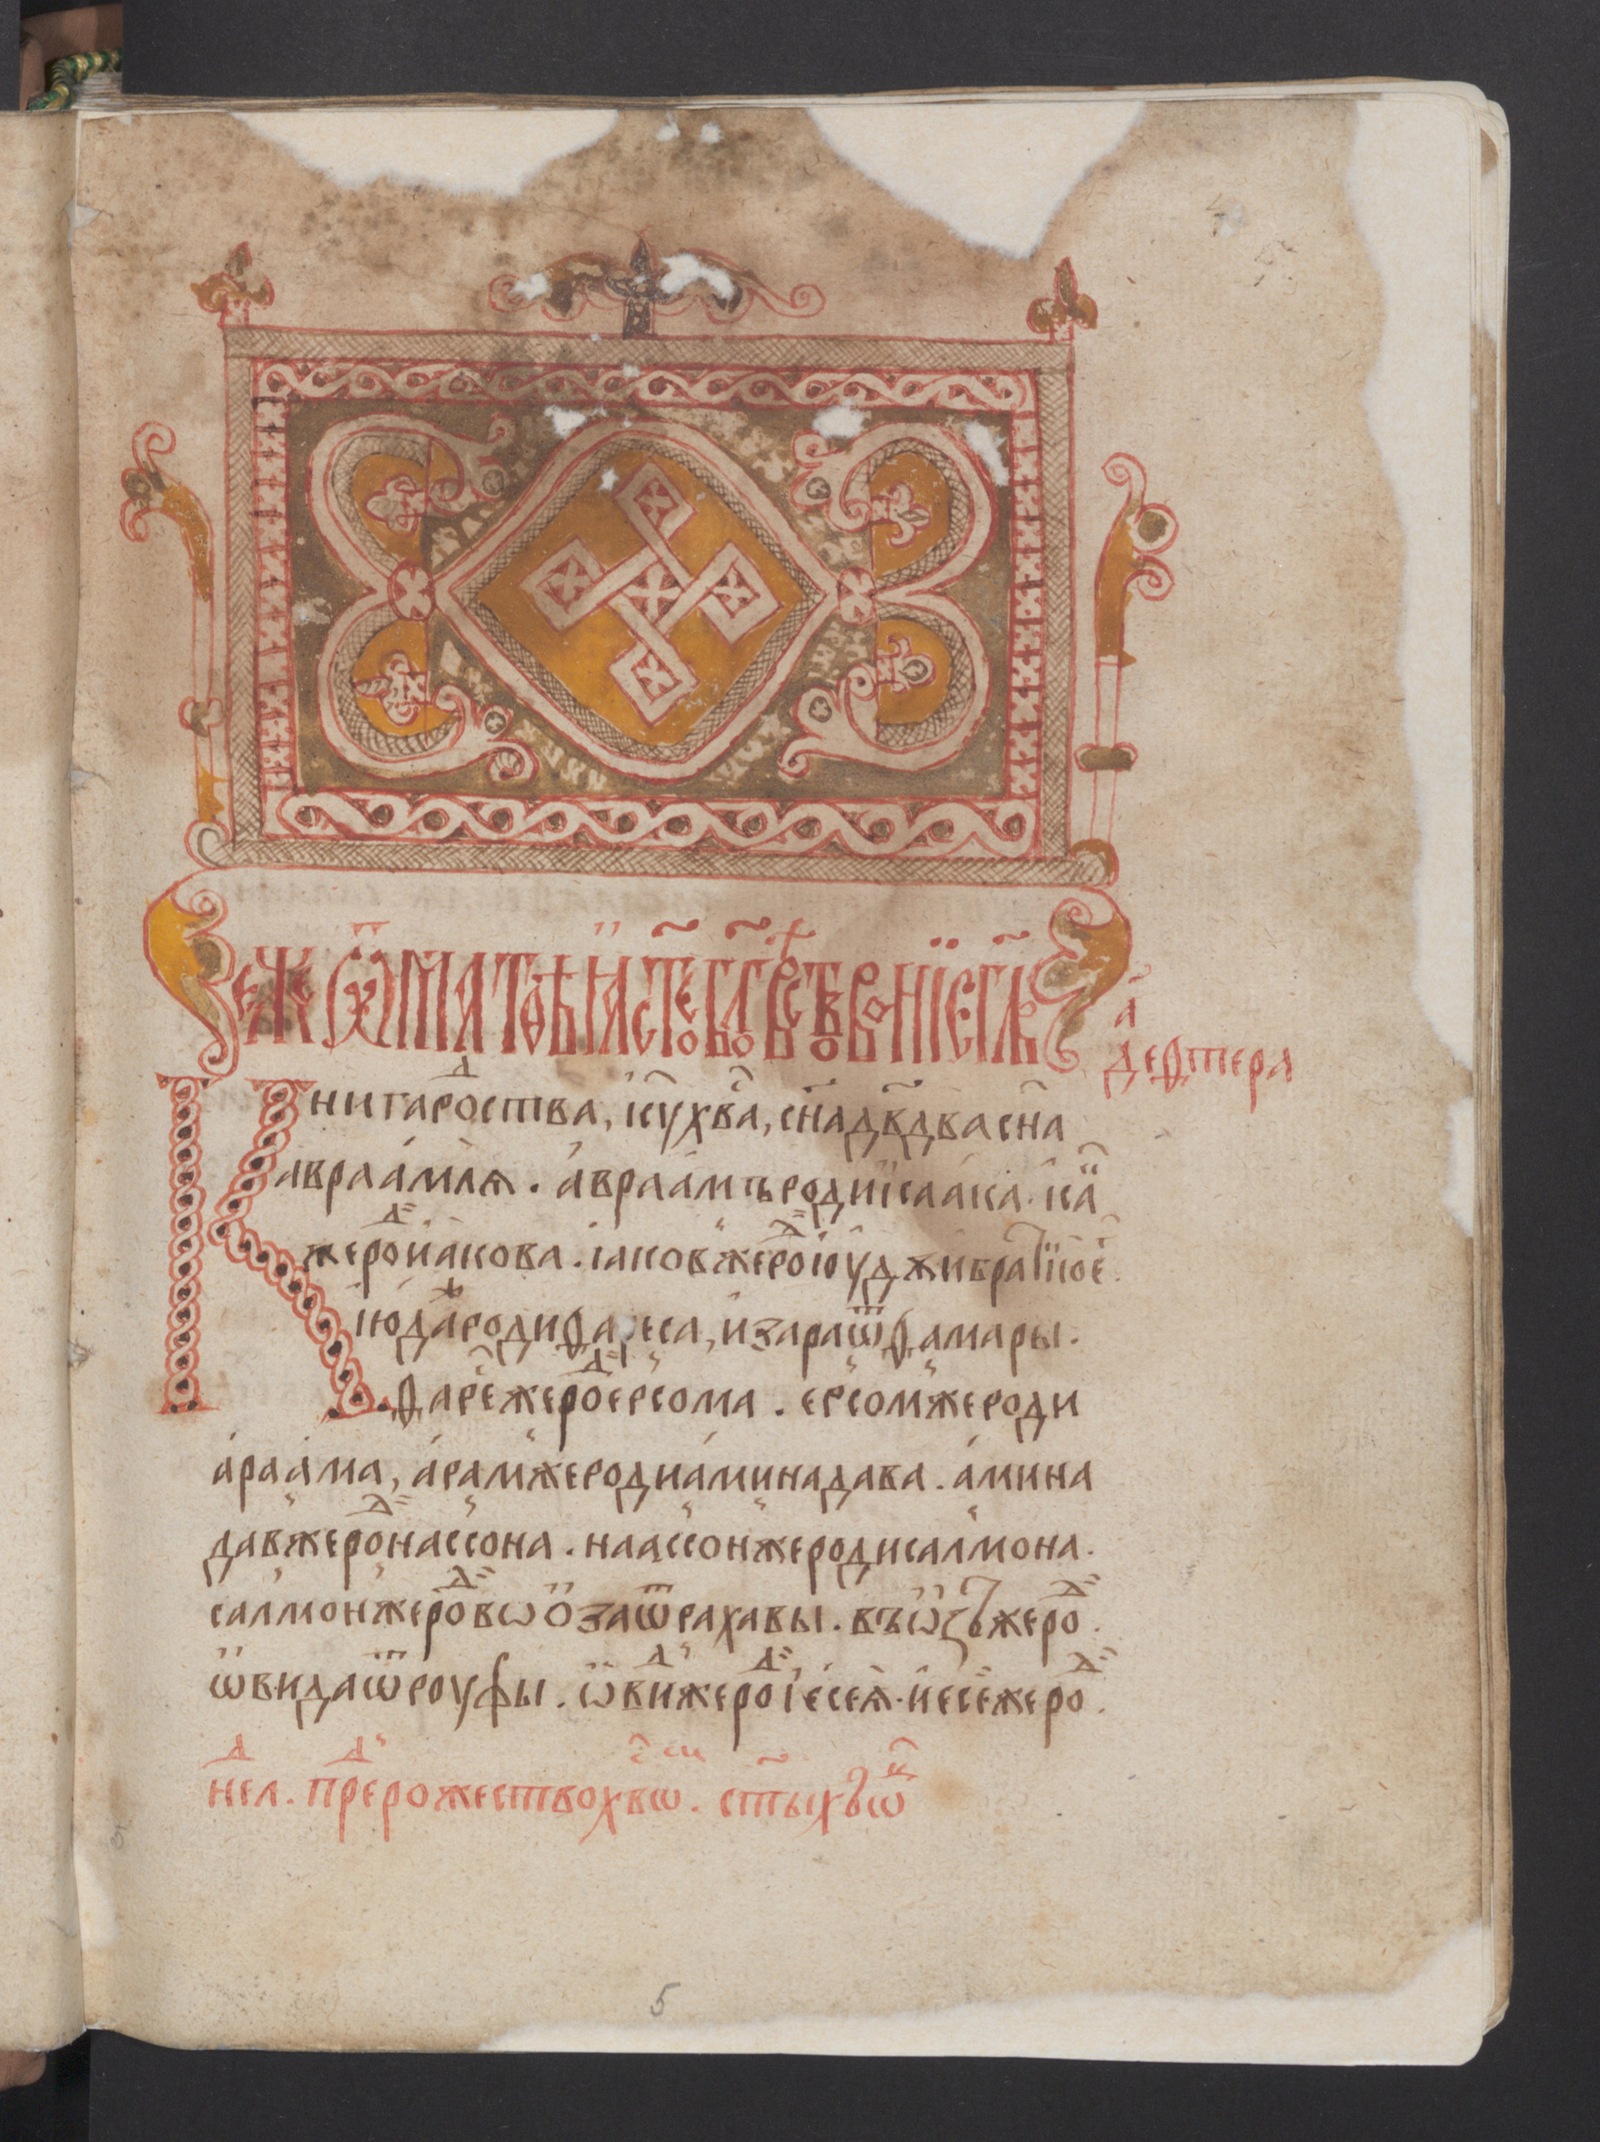 еже ѿ матѳеꙗ ст҃ое бл҃говѣствованїе гл҃
а҃
деѳтера
Книга роⷣства, іс҃у хв҃а, сн҃а дв҃два сн҃а
авраамлꙗ. авраамъ роди ісаака. іса҃
же роⷣ иакова. іаков же роⷣ іоуд ѫ и братїю е҃.
іюда роди ѳареса, и зара ѿ ѳамары.
ѳаре же роⷣ ерсома. ерсом же роди
араама, арам же роди аминадава. амина
дав же роⷣ нассона. наассон же роди салмона.
салмон же роⷣ вѡоза ѿ рахавы. въѡз же роⷣ.
ѡвида ѿ роуфы. ѡвиⷣ же роⷣ іесеѧ. иесе же роⷣ.
неⷣл. преⷣ рожество хв҃ѡ. ст҃ыⷯ ѡ҃ц
5